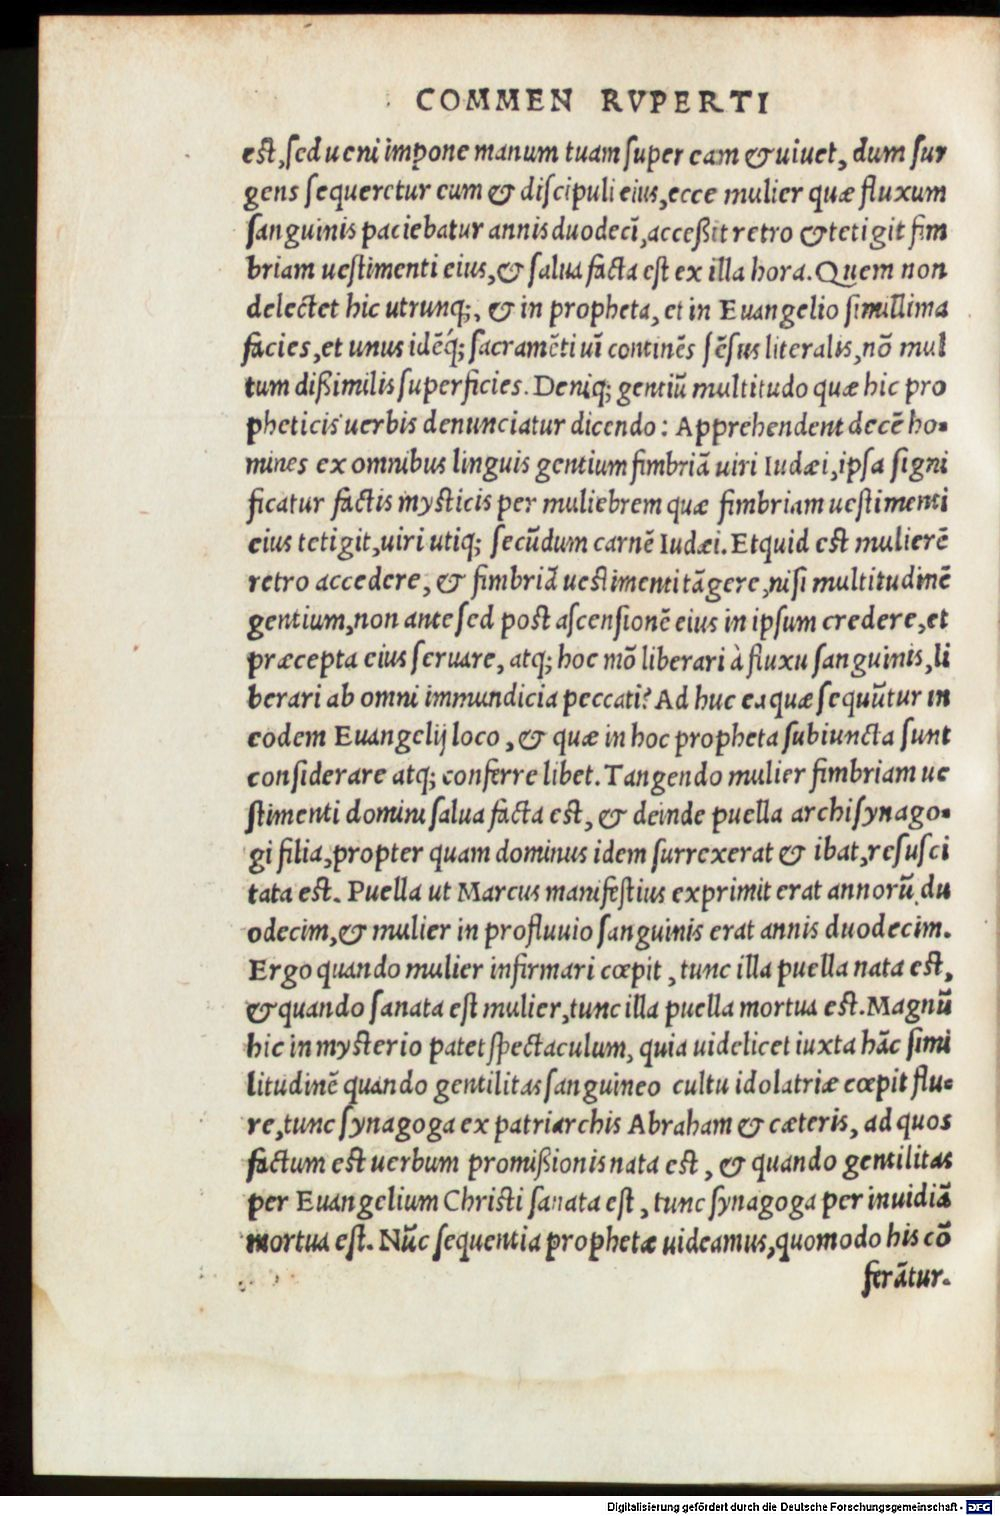 COMMEN RVPERTI
est, sed ueni impone manum tuam super eam & uiuet, dum sur
gens sequeretur eum & discipuli eius, ecce mulier quæ fluxum
sanguinis paciebatur annis duodecī, acceßit retro & tetigit fim
briam uestimenti eius, & salua facta est ex illa hora. Quem non
delectet hic utrunq;, & in propheta, et in Euangelio simillima
facies, et unus idēq́; sacramēti uī continēs sēsus literalis, nō mul
tum dißimilis superficies. Deniq; gentiū multitudo quæ hic pro
pheticis uerbis denunciatur dicendo: Apprehendent decē ho-
mines ex omnibus linguis gentium fimbriā uiri Iudæi, ipsa signi
ficatur factis mysticis per muliebrem quæ fimbriam uestimenti
eius tetigit, uiri utiq; secūdum carnē Iudæi. Et quid est mulierē
retro accedere, & fimbriā uestimenti tāgere, nisi multitudinē
gentium, non ante sed post ascensionē eius in ipsum credere, et
præcepta eius seruare, atq; hoc mō liberari à fluxu sanguinis, li
berari ab omni immundicia peccati? Ad huc ea quæ sequūtur in
eodem Euangelij loco, & quæ in hoc propheta subiuncta sunt
considerare atq; conferre libet. Tangendo mulier fimbriam ue
stimenti domini salua facta est, & deinde puella archisynago-
gi filia, propter quam dominus idem surrexerat & ibat, resusci
tata est. Puella ut Marcus manifestius exprimit erat annorū du
odecim, & mulier in profluuio sanguinis erat annis duodecim.
Ergo quando mulier infirmari cœpit, tunc illa puella nata est,
& quando sanata est mulier, tunc illa puella mortua est. Magnū
hic in mysterio patet spectaculum, quia uidelicet iuxta hāc simi
litudinē quando gentilitas sanguineo cultu idolatriæ cœpit flu-
re, tunc synagoga ex patriarchis Abraham & cæteris, ad quos
factum est uerbum promißionis nata est, & quando gentilitas
per Euangelium Christi sanata est, tunc synagoga per inuidiā
mortua est. Nūc sequentia prophetæ uideamus, quomodo his cō
ferātur.
Digitalisierung gefördert durch die Deutsche Forschungsgemeinschaft - DFG